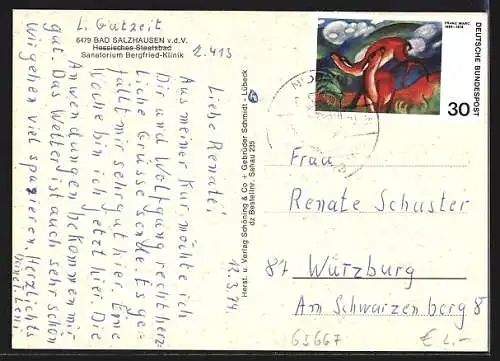 L. Gutzeit
6479 BAD SALZHAUSEN v.d.V.
Hessisches Staatsbad
Sanatorium Bergfried-Klinik
2.413
Liebe Renate!
Aus meiner Kur, möchte ich
Dir und Wolfgang recht herz-
liche Grüsse senden. Es ge-
fällt mir sehr gut hier. Eine
Woche bin ich jetzt hier. Die
Anwendungen bekommen mir
gut. Das Wetter ist auch sehr schön
Wir gehen viel spazieren. Herzlichst
12.3.74
Herst. u. Verlag Schöning & Co + Gebrüder Schmidt - Lübeck
dz Bestellnr. Sahau 235
FRANZ MARC
1880-1916
DEUTSCHE BUNDESPOST
30
Frau
Renate Schuster
87 Würzburg
Am Schwarzenberg 8
63667
€ 2.-